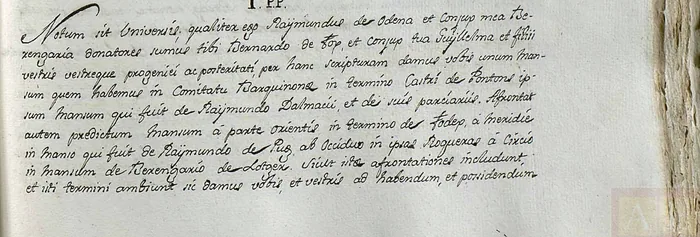 I. PP.
Notum sit Universis, qualiter ego Raÿmundus de Odena et Conjux mea Be-
rengaria donatores sumus tibi Bernardo de Fop, et Conjux tua Guÿlielma et filiis
vestris vestreque progeniei ac posteritati per hanc scripturam damus vobis unum man-
sum quem habemus in Comitatu Barquinone in termino Castri de Pontons ip-
sum mansum qui fuit de Raÿmundo Dalmacii, et de suis parciariis. Afrontat
autem predictum mansum à parte orientis in termino de Fodep, à meridie
in manso qui fuit de Raÿmundo de Pug ab Occiduo in ipsas Nogueras à Circio
in mansum de Berengario de Lotger. Sicut iste afrontationes includunt
et isti termini ambiunt sic damus vobis, et vestris ad habendum, et possidendum